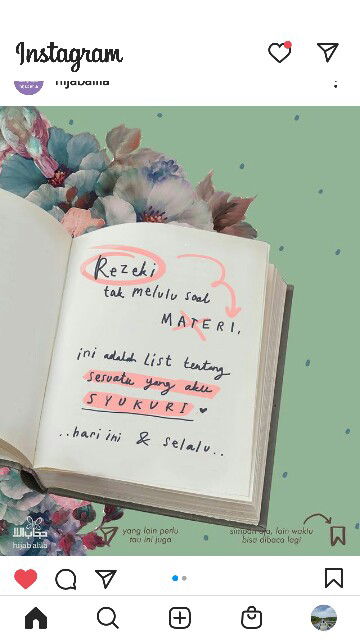 Instagram
hijabalila
Rezeki
tak melulu soal
MATERI,
ini adalah list tentang
sesuatu yang aku
SYUKURI
..hari ini & selalu..
hijab alila
yang lain perlu
tau ini juga
simpan aja, lain waktu
bisa dibaca lagi